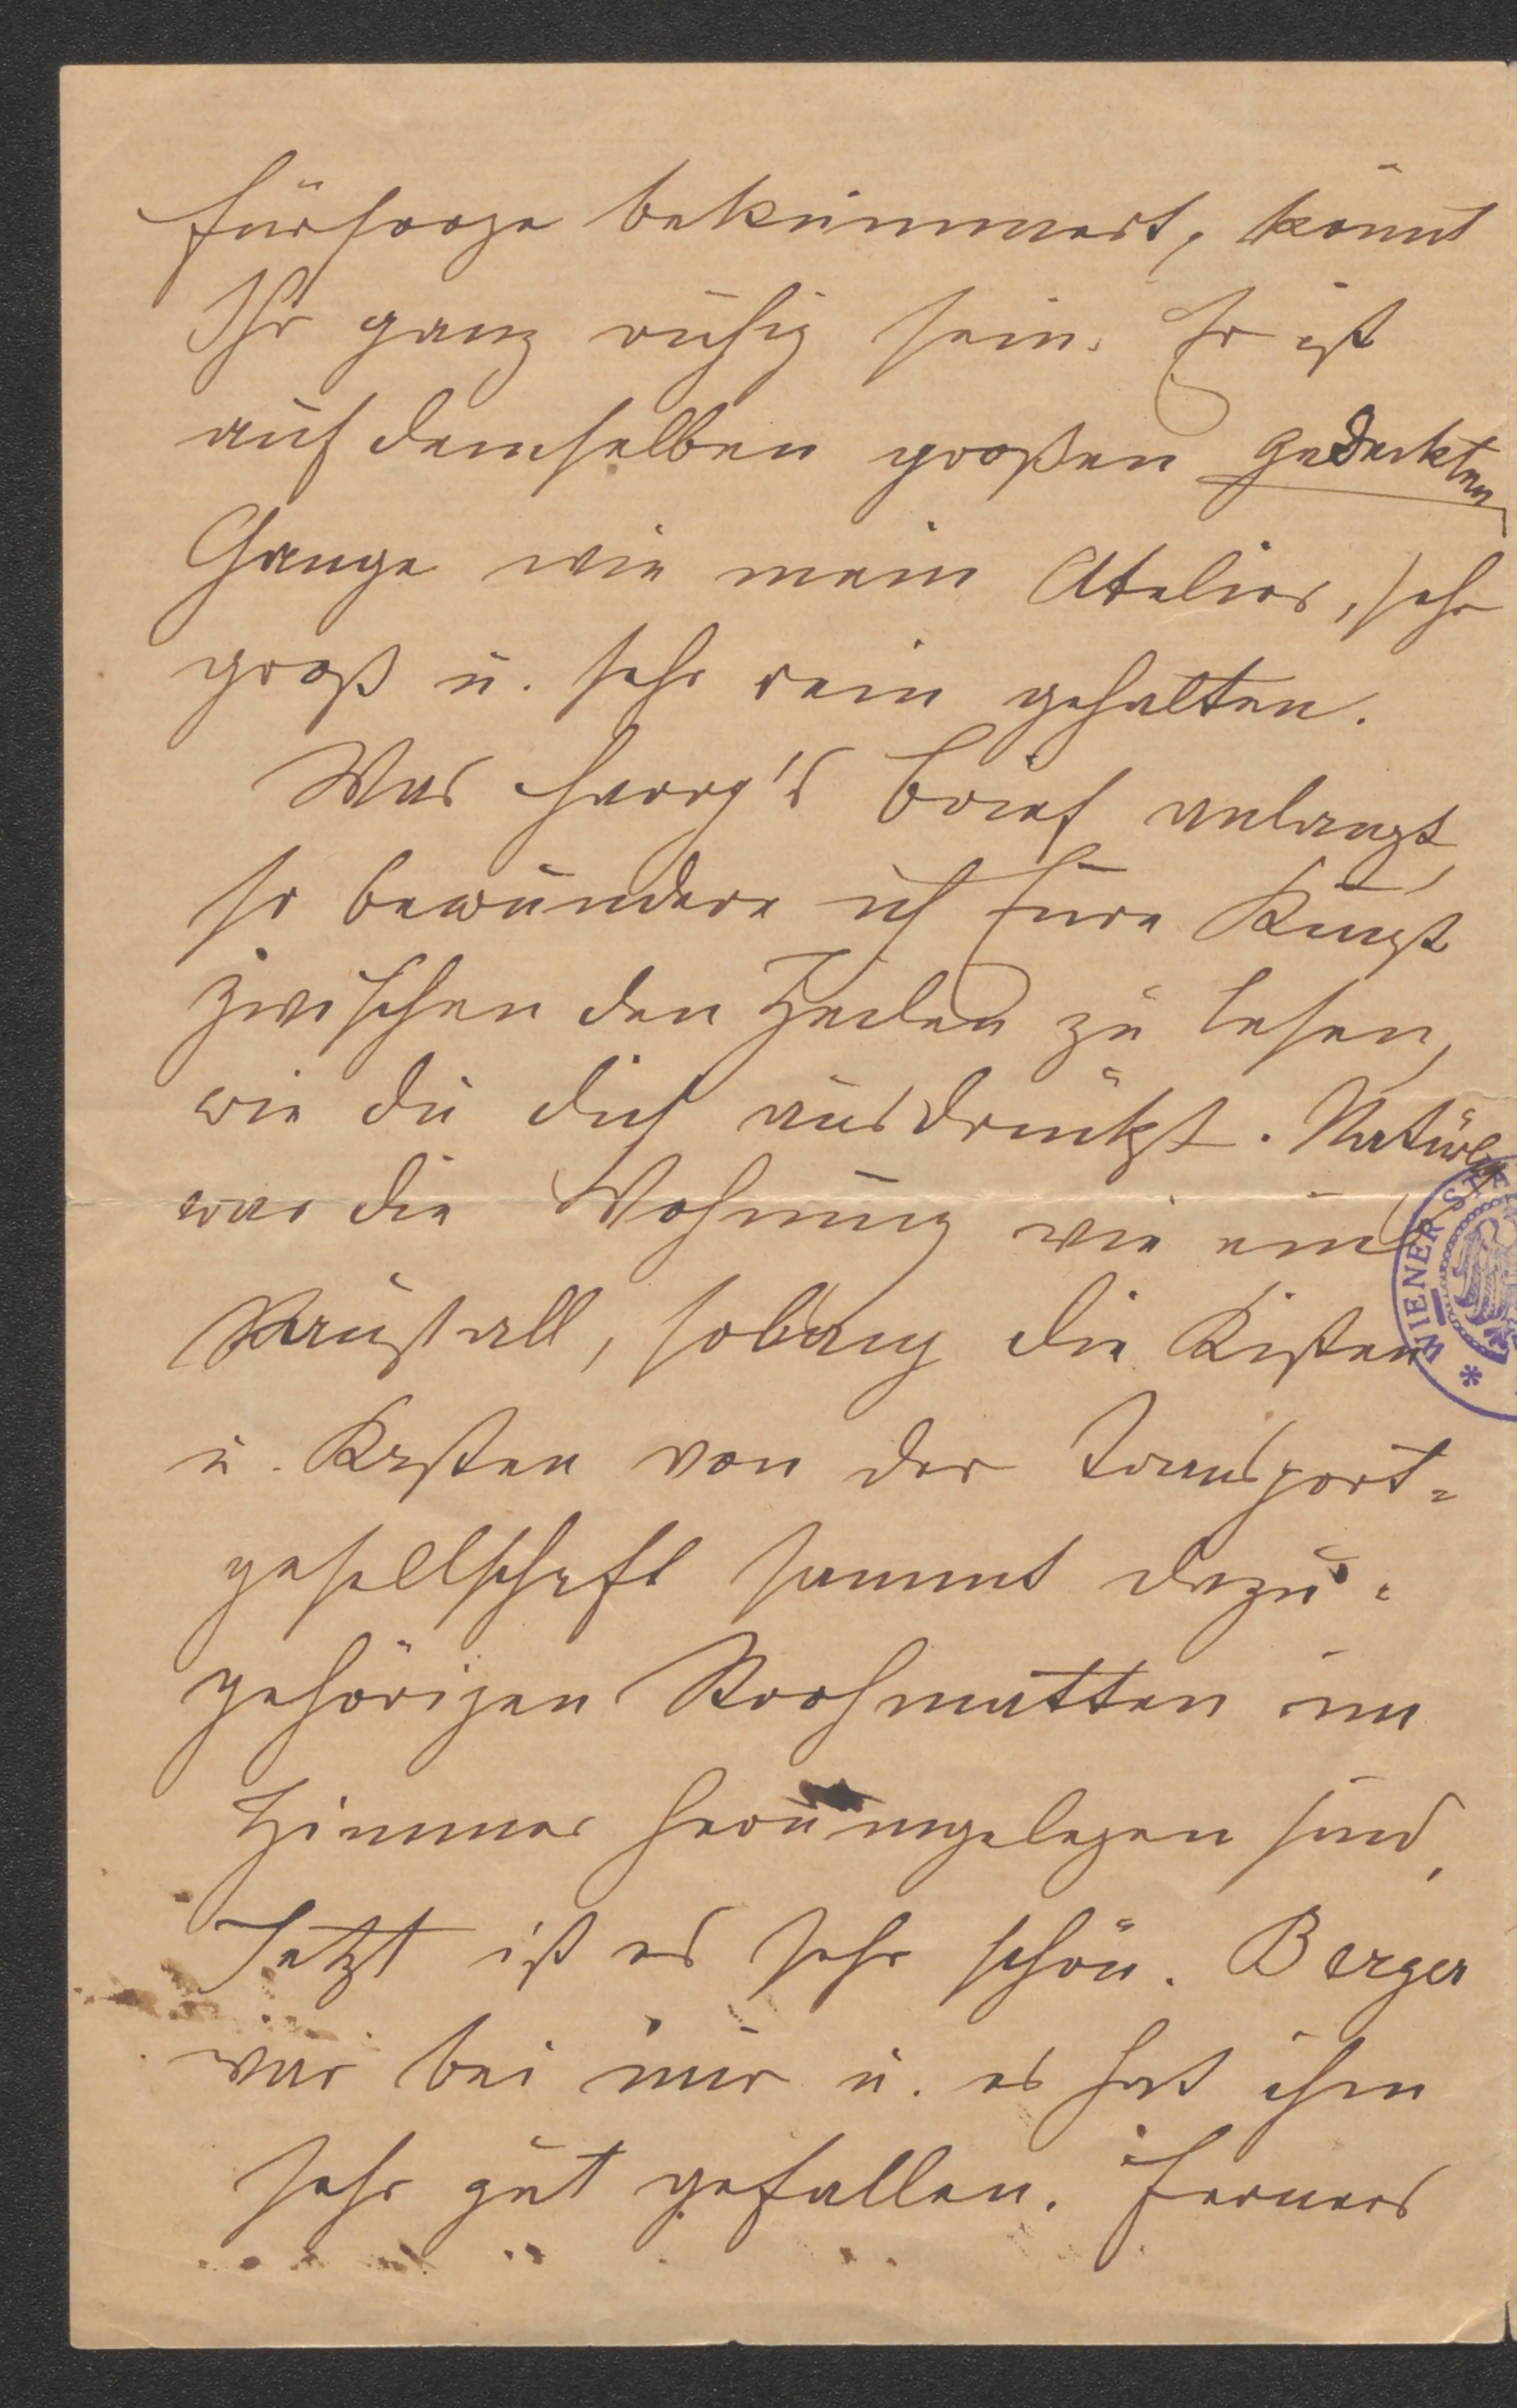 fürsorge bekümmert, könnt
Ihr ganz ruhig sein. Er ist
auf demselben großen gedeckten
Gange wie mein Atelier, sehr
groß u. sehr rein gehalten.
Was Harry's Brief anlangt,
so bewundere ich Eure Kunst
zwischen den Zeilen zu lesen,
wie du dich ausdrückst. Natürlich
war die Wohnung wie ein
Saustall, solang die Kisten
u. Kasten von der Transport=
gesellschaft sammt dazu=
gehörigen Strohmatten im
Zimmer herumgelegen sind,
Jetzt ist es sehr schön. Berger
war bei mir u. es hat ihm
sehr gut gefallen. Ferners
WIENER ST